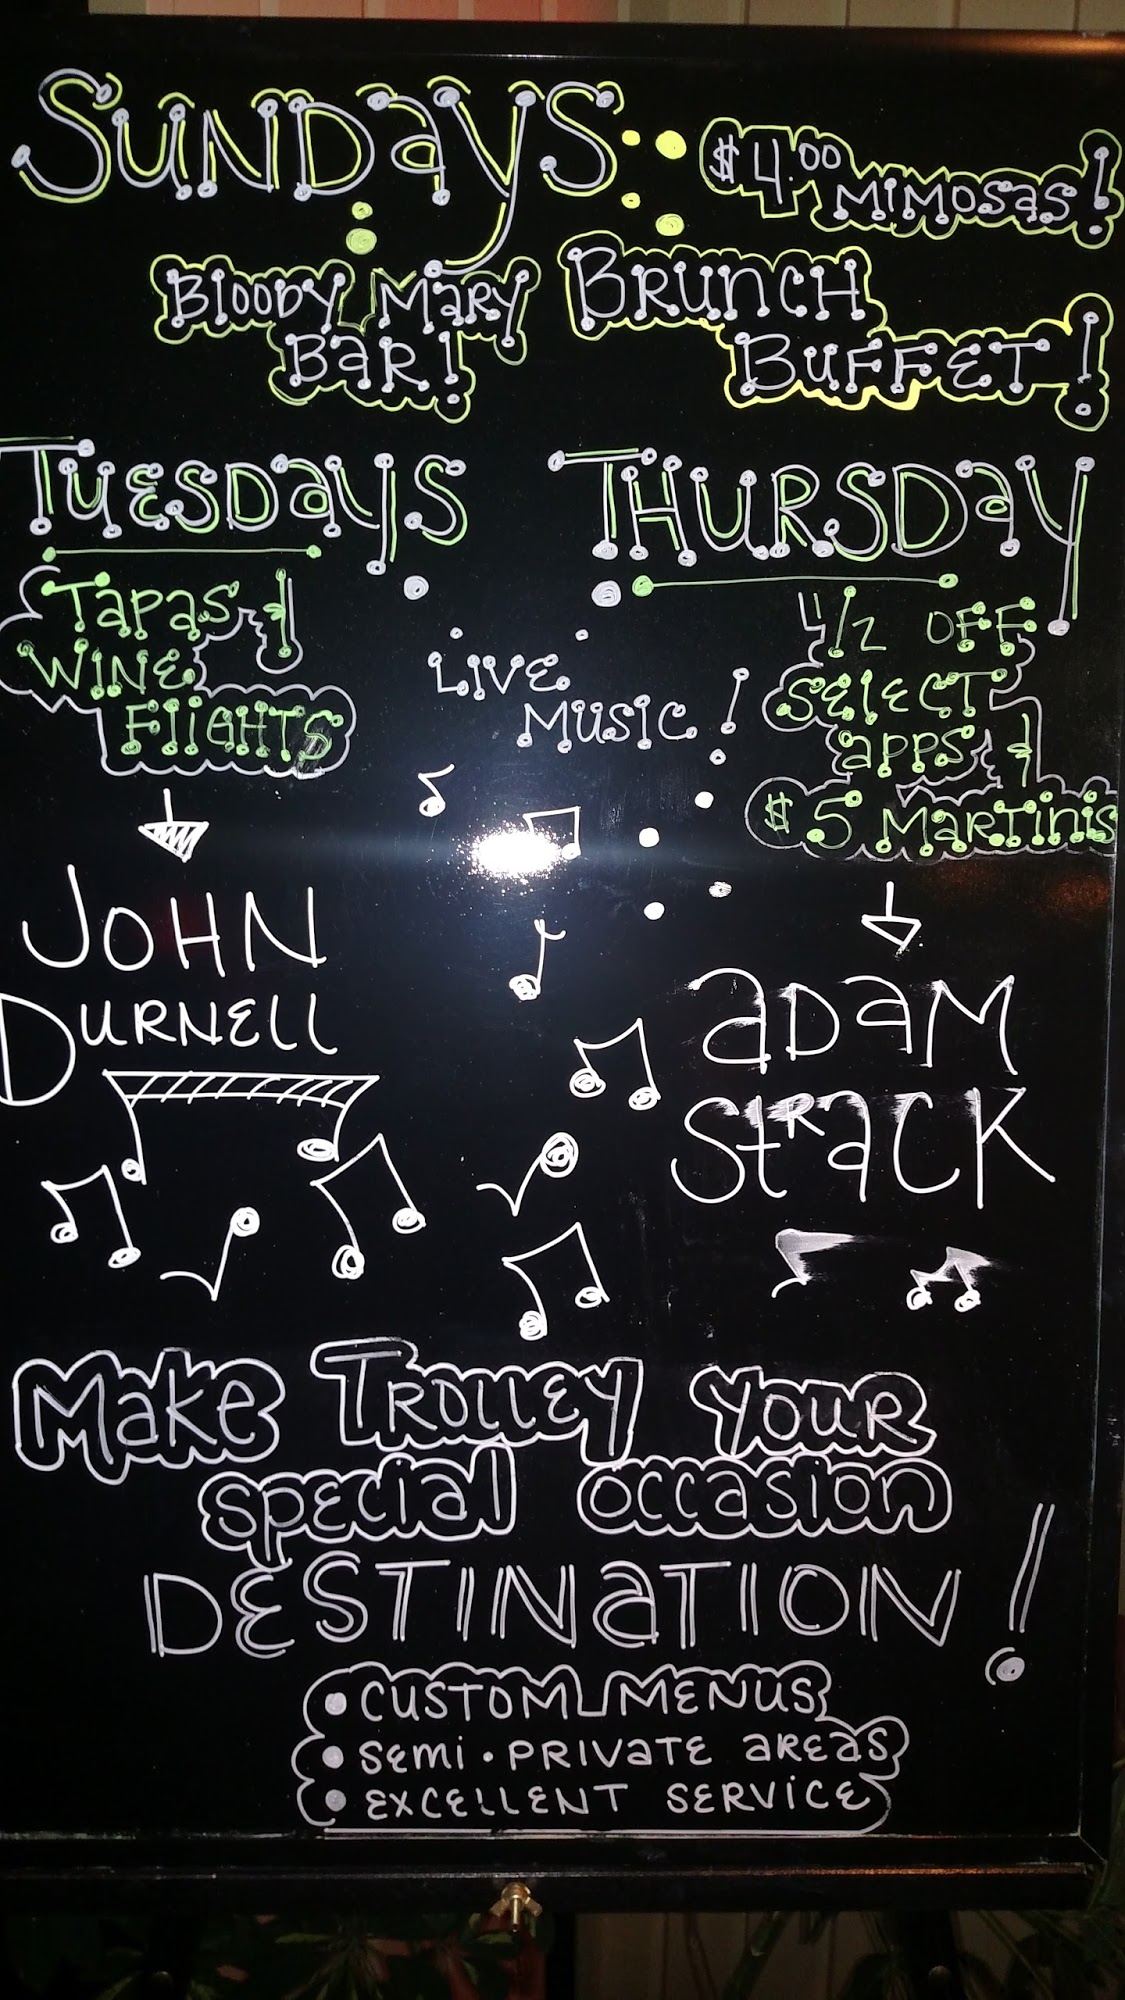 SUNDAYS
$4.00 MIMOSAS!
BLOODY MARY
BAR!
BRUNCH
BUFFET!
TUESDAYS
TAPAS &
WINE
FLIGHTS
JOHN
DURNELL
LIVE
MUSIC!
THURSDAY
1/2 OFF
SELECT
APPS &
$5 MARTINIS
ADAM
STRACK
MAKE TROLLEY YOUR
SPECIAL OCCASION
DESTINATION!
• CUSTOM MENUS
• SEMI-PRIVATE AREAS
• EXCELLENT SERVICE